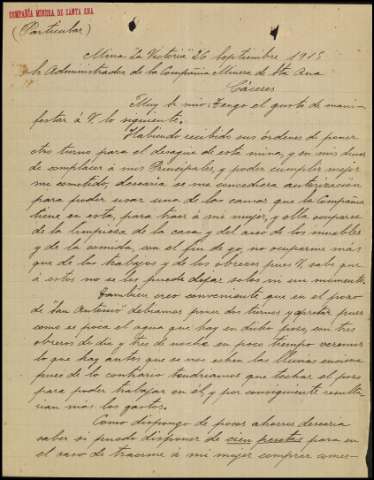 COMPAÑIA MINERA DE SANTA ANA
(Particular)
Mina "La Victoria" 26 Septiembre 1915
Administrador de la Compañia Minera de Sta Ana
Cáceres
Muy Sr mio: Tengo el gusto de mani-
festar á V. lo siguiente.
Habiendo recibido sus órdenes de poner
otro turno para el desagüe de esta mina, y en mis deseos
de complacer á mis Principales, y poder cumplir mejor
mi cometido, desearia se me concediera autorizacion
para poder usar una de las camas que la Compañia
tiene en esta, para traer á mi mujer, y ella ocuparse
de la limpieza de la casa y del aseo de los muebles
y de la comida, con el fin de yo no ocuparme más
que de los trabajos y de los obreros pues V. sabe que
á estos no se les puede dejar solos ni un momento.
Tambien creo conveniente que en el pozo
de "San Antonio" debiamos poner dos turnos y apretar pues
como es poca el agua que hay en dicho pozo, con tres
obreros de dia y tres de noche en poco tiempo veriamos
lo que hay antes que se nos echen las lluvias encima
pues de lo contrario tendriamos que techar el pozo
para poder trabajar en él, y por consiguiente resulta-
rian más los gastos.
Como dispongo de pocos ahorros desearia
saber si puedo disponer de cien pesetas para en
el caso de traerme á mi mujer comprar comes-